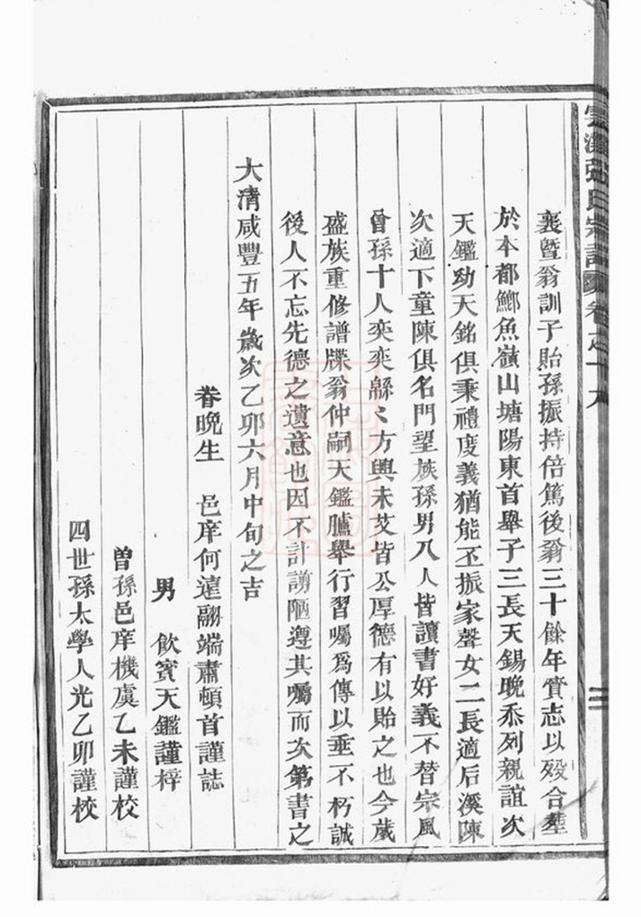 張氏宗譜 卷之十八
襄暨翁訓子貽孫振持倍篤後翁三十餘年賫志以歿合塟
於本都鰤魚嶺山塘陽東首舉子三長天錫晚忝列親誼次
天鑑幼天銘俱秉禮度義猶能丕振家聲女二長適后溪陳
次適下童陳俱名門望族孫男八人皆讀書好義不替宗風
曾孫十人奕奕緜〻方興未艾皆公厚德有以貽之也今歲
盛族重修譜牒翁仲嗣天鑑臚舉行習囑爲傳以垂不朽誠
後人不忘先德之遺意也因不計謭陋遵其囑而次第書之
大清咸豐五年歲次乙卯六月中旬之吉
眷晚生 邑庠何遠翮端肅頓首謹誌
男 飲賓天鑑謹梓
曾孫邑庠機虞乙未謹校
四世孫太學人光乙卯謹校